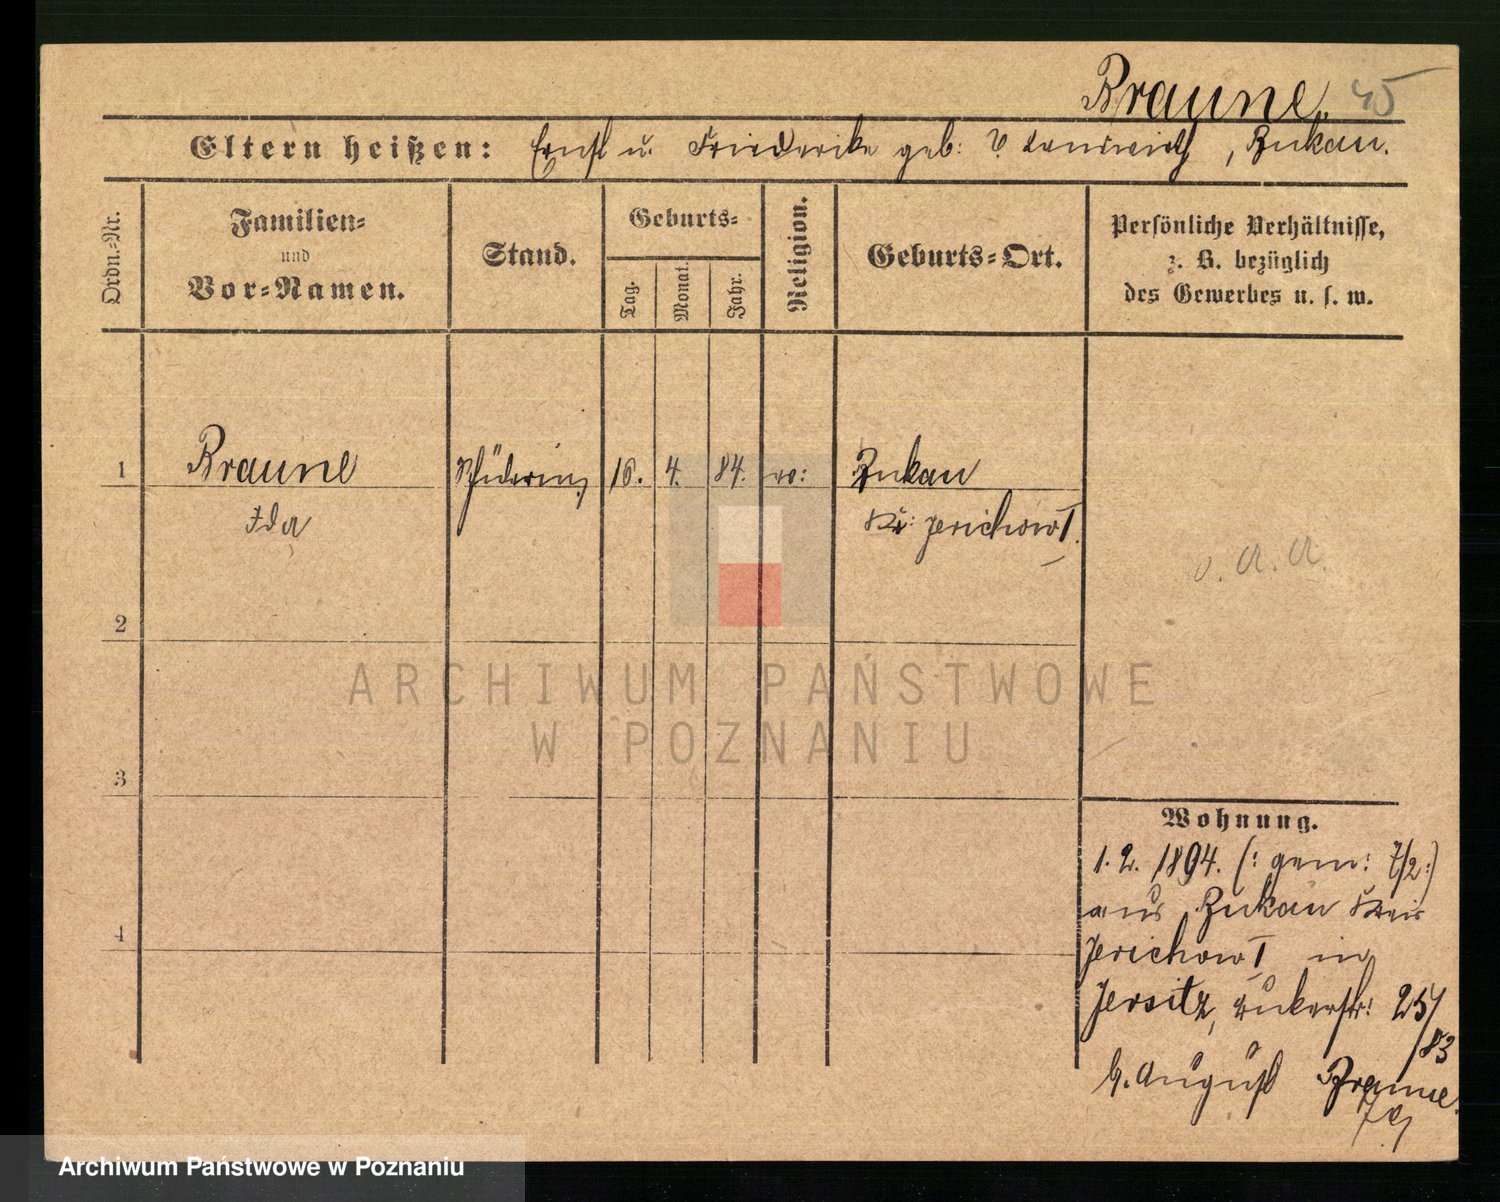 Braune. 45
Eltern heißen: Ernst u. Friederike geb: , Zukau.
Ordn.-Nr.
Familien-
und
Vor-Namen.
Stand.
Geburts-
Tag.
Monat.
Jahr.
Religion.
Geburts-Ort.
Persönliche Verhältnisse,
z. B. bezüglich
des Gewerbes u. s. w.
1 Braune 16. 4. 84. Zukau
Ida Kr: Jerichow I.
v. A. A.
2
3
4
Wohnung.
1. 2. 1894. (: gem: 7/2 :)
aus Zukau Kreis
Jerichow I in
Jersitz, 25/
83
b. August Braune.
ARCHIWUM PAŃSTWOWE
W POZNANIU
Archiwum Państwowe w Poznaniu